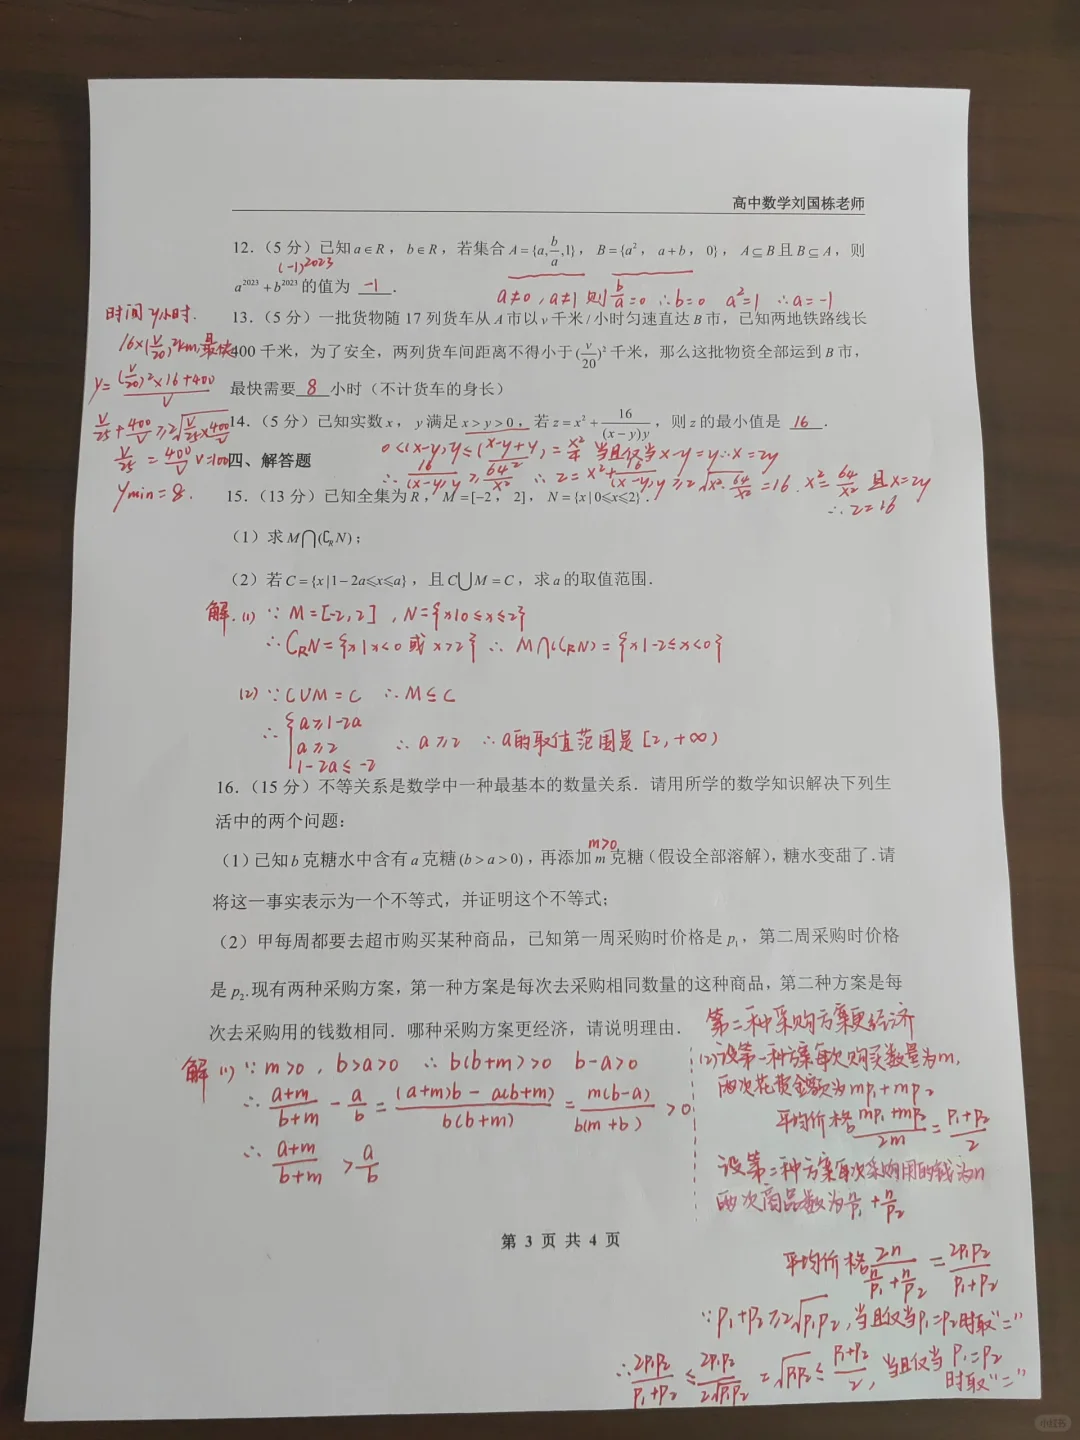 高中数学刘国栋老师
12.（5 分）已知a∈R，b∈R，若集合A={a, b/a, 1}，B={a²，a+b，0}，A⊆B且B⊆A，则
(-1)²⁰²³
a²⁰²³+b²⁰²³的值为 -1 .
a≠0，a≠1 则 b/a=0 ∴b=0 a²=1 ∴a=-1
时间y小时.
13.（5 分）一批货物随 17 列货车从A市以v千米/小时匀速直达B市，已知两地铁路线长
16×(v/20)²km最快
400 千米，为了安全，两列货车间距离不得小于(v/20)²千米，那么这批物资全部运到B市，
y=((v/20)²×16+400)/v
最快需要 8 小时（不计货车的身长）
v/25+400/v≥2√(v/25×400/v)
v/25=400/v v=100
ymin=8.
14.（5 分）已知实数x，y满足x>y>0，若z=x²+16/((x-y)y)，则z的最小值是 16 .
0<(x-y)y≤(x-y+y/2)²=x²/4 当且仅当x-y=y∴x=2y
∴16/((x-y)y)≥64/x² ∴z=x²+16/((x-y)y)≥2√(x²·64/x²)=16. x²=64/x² 且x=2y
∴z=16
四、解答题
15.（13 分）已知全集为R，M=[-2，2]，N={x|0≤x≤2}.
（1）求M⋂(∁RN)；
（2）若C={x|1-2a≤x≤a}，且C⋃M=C，求a的取值范围.
解.(1) ∵M=[-2,2]，N={x|0≤x≤2}
∴CRN={x|x<0或x>2} ∴M∩(CRN)={x|-2≤x<0}
(2) ∵C∪M=C ∴M⊆C
∴{a≥1-2a
a≥2
1-2a≤-2
∴a≥2 ∴a的取值范围是[2,+∞)
16.（15 分）不等关系是数学中一种最基本的数量关系．请用所学的数学知识解决下列生
活中的两个问题：
m>0
（1）已知b克糖水中含有a克糖(b>a>0)，再添加m克糖（假设全部溶解），糖水变甜了.请
将这一事实表示为一个不等式，并证明这个不等式；
（2）甲每周都要去超市购买某种商品，已知第一周采购时价格是p₁，第二周采购时价格
是p₂.现有两种采购方案，第一种方案是每次去采购相同数量的这种商品，第二种方案是每
次去采购用的钱数相同．哪种采购方案更经济，请说明理由．
解(1) ∵m>0，b>a>0 ∴b(b+m)>0 b-a>0
∴(a+m)/(b+m)-a/b=((a+m)b-a(b+m))/(b(b+m))=m(b-a)/(b(m+b))>0
∴(a+m)/(b+m)>a/b
第二种采购方案更经济
(2)设第一种方案每次购买数量为m,
两次花费金额为mp₁+mp₂
平均价格(mp₁+mp₂)/2m=(p₁+p₂)/2
设第二种方案每次采购用的钱为n
两次商品数为n/p₁+n/p₂
平均价格2n/(n/p₁+n/p₂)=2p₁p₂/(p₁+p₂)
∵p₁+p₂≥2√(p₁p₂),当且仅当p₁=p₂时取"="
∴2p₁p₂/(p₁+p₂)≤2p₁p₂/(2√(p₁p₂))=√(p₁p₂)≤(p₁+p₂)/2,当且仅当p₁=p₂
时取"="
第 3 页 共 4 页
小红书